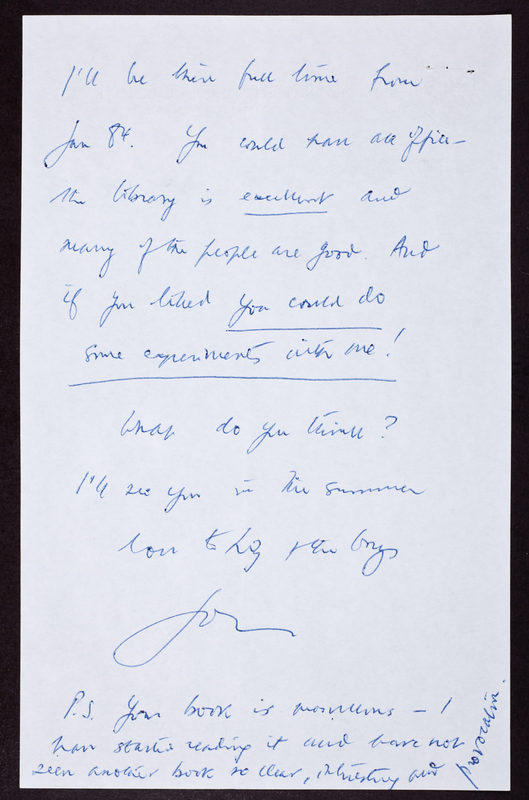 I'll be there full time from
Jan 84. You could have an office -
the library is excellent and
many of the people are good. And
if you liked you could do
some experiments with me!
What do you think?
I'll see you in the summer
love to Liz & the boys
Jon
P.S. Your book is marvellous - I
have started reading it and have not
seen another book so clear, interesting and